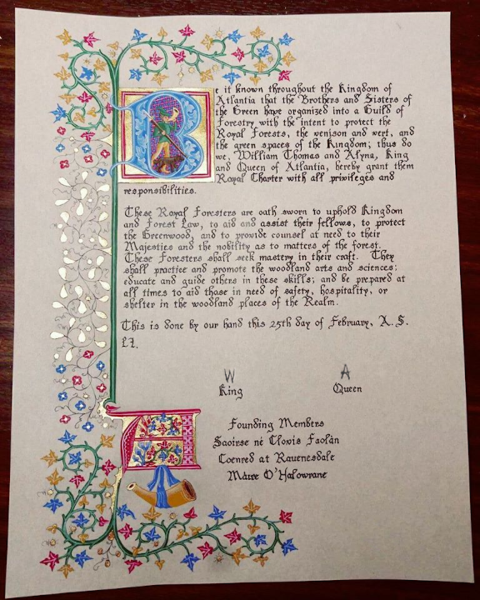 Be it known throughout the Kingdom of
Atlantia that the Brothers and Sisters of
the Green have organized into a Guild of
Forestry with the intent to protect the
Royal Forests, the venison and vert, and
the green spaces of the Kingdom; thus do
we, William Thomas and Alyna, King
and Queen of Atlantia, hereby grant them
Royal Charter with all privileges and
responsibilities.
These Royal Foresters are oath sworn to uphold Kingdom
and Forest Law, to aid and assist their fellows, to protect
the Greenwood, and to provide counsel at need to their
Majesties and the nobility as to matters of the forest.
These Foresters shall seek mastery in their craft. They
shall practice and promote the woodland arts and sciences;
educate and guide others in these skills; and be prepared at
all times to aid those in need of safety, hospitality, or
shelter in the woodland places of the Realm.
This is done by our hand this 25th day of February, A.S.
LI.
W A
King Queen
Founding Members
Saoirse nè Clovis Faolán
Coenred æt Rauenesdale
Máire O'Halowrane